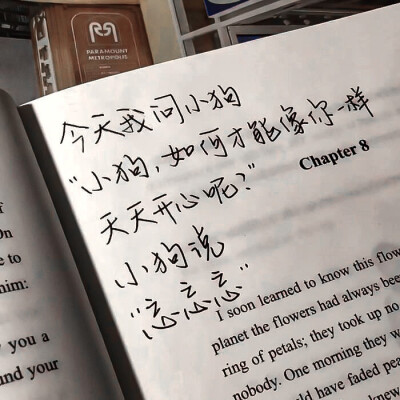 PARAMOUNT
METROPOLIS
今天我问小狗
"小狗,如何才能像你一样
天天开心呢?"
小狗说
"忘忘忘"
Chapter 8
I soon learned to know this flow
planet the flowers had always bee
ring of petals; they took up no
nobody. One morning they w
ld have faded pea
knew
On
e to
him:
y you a
nd your